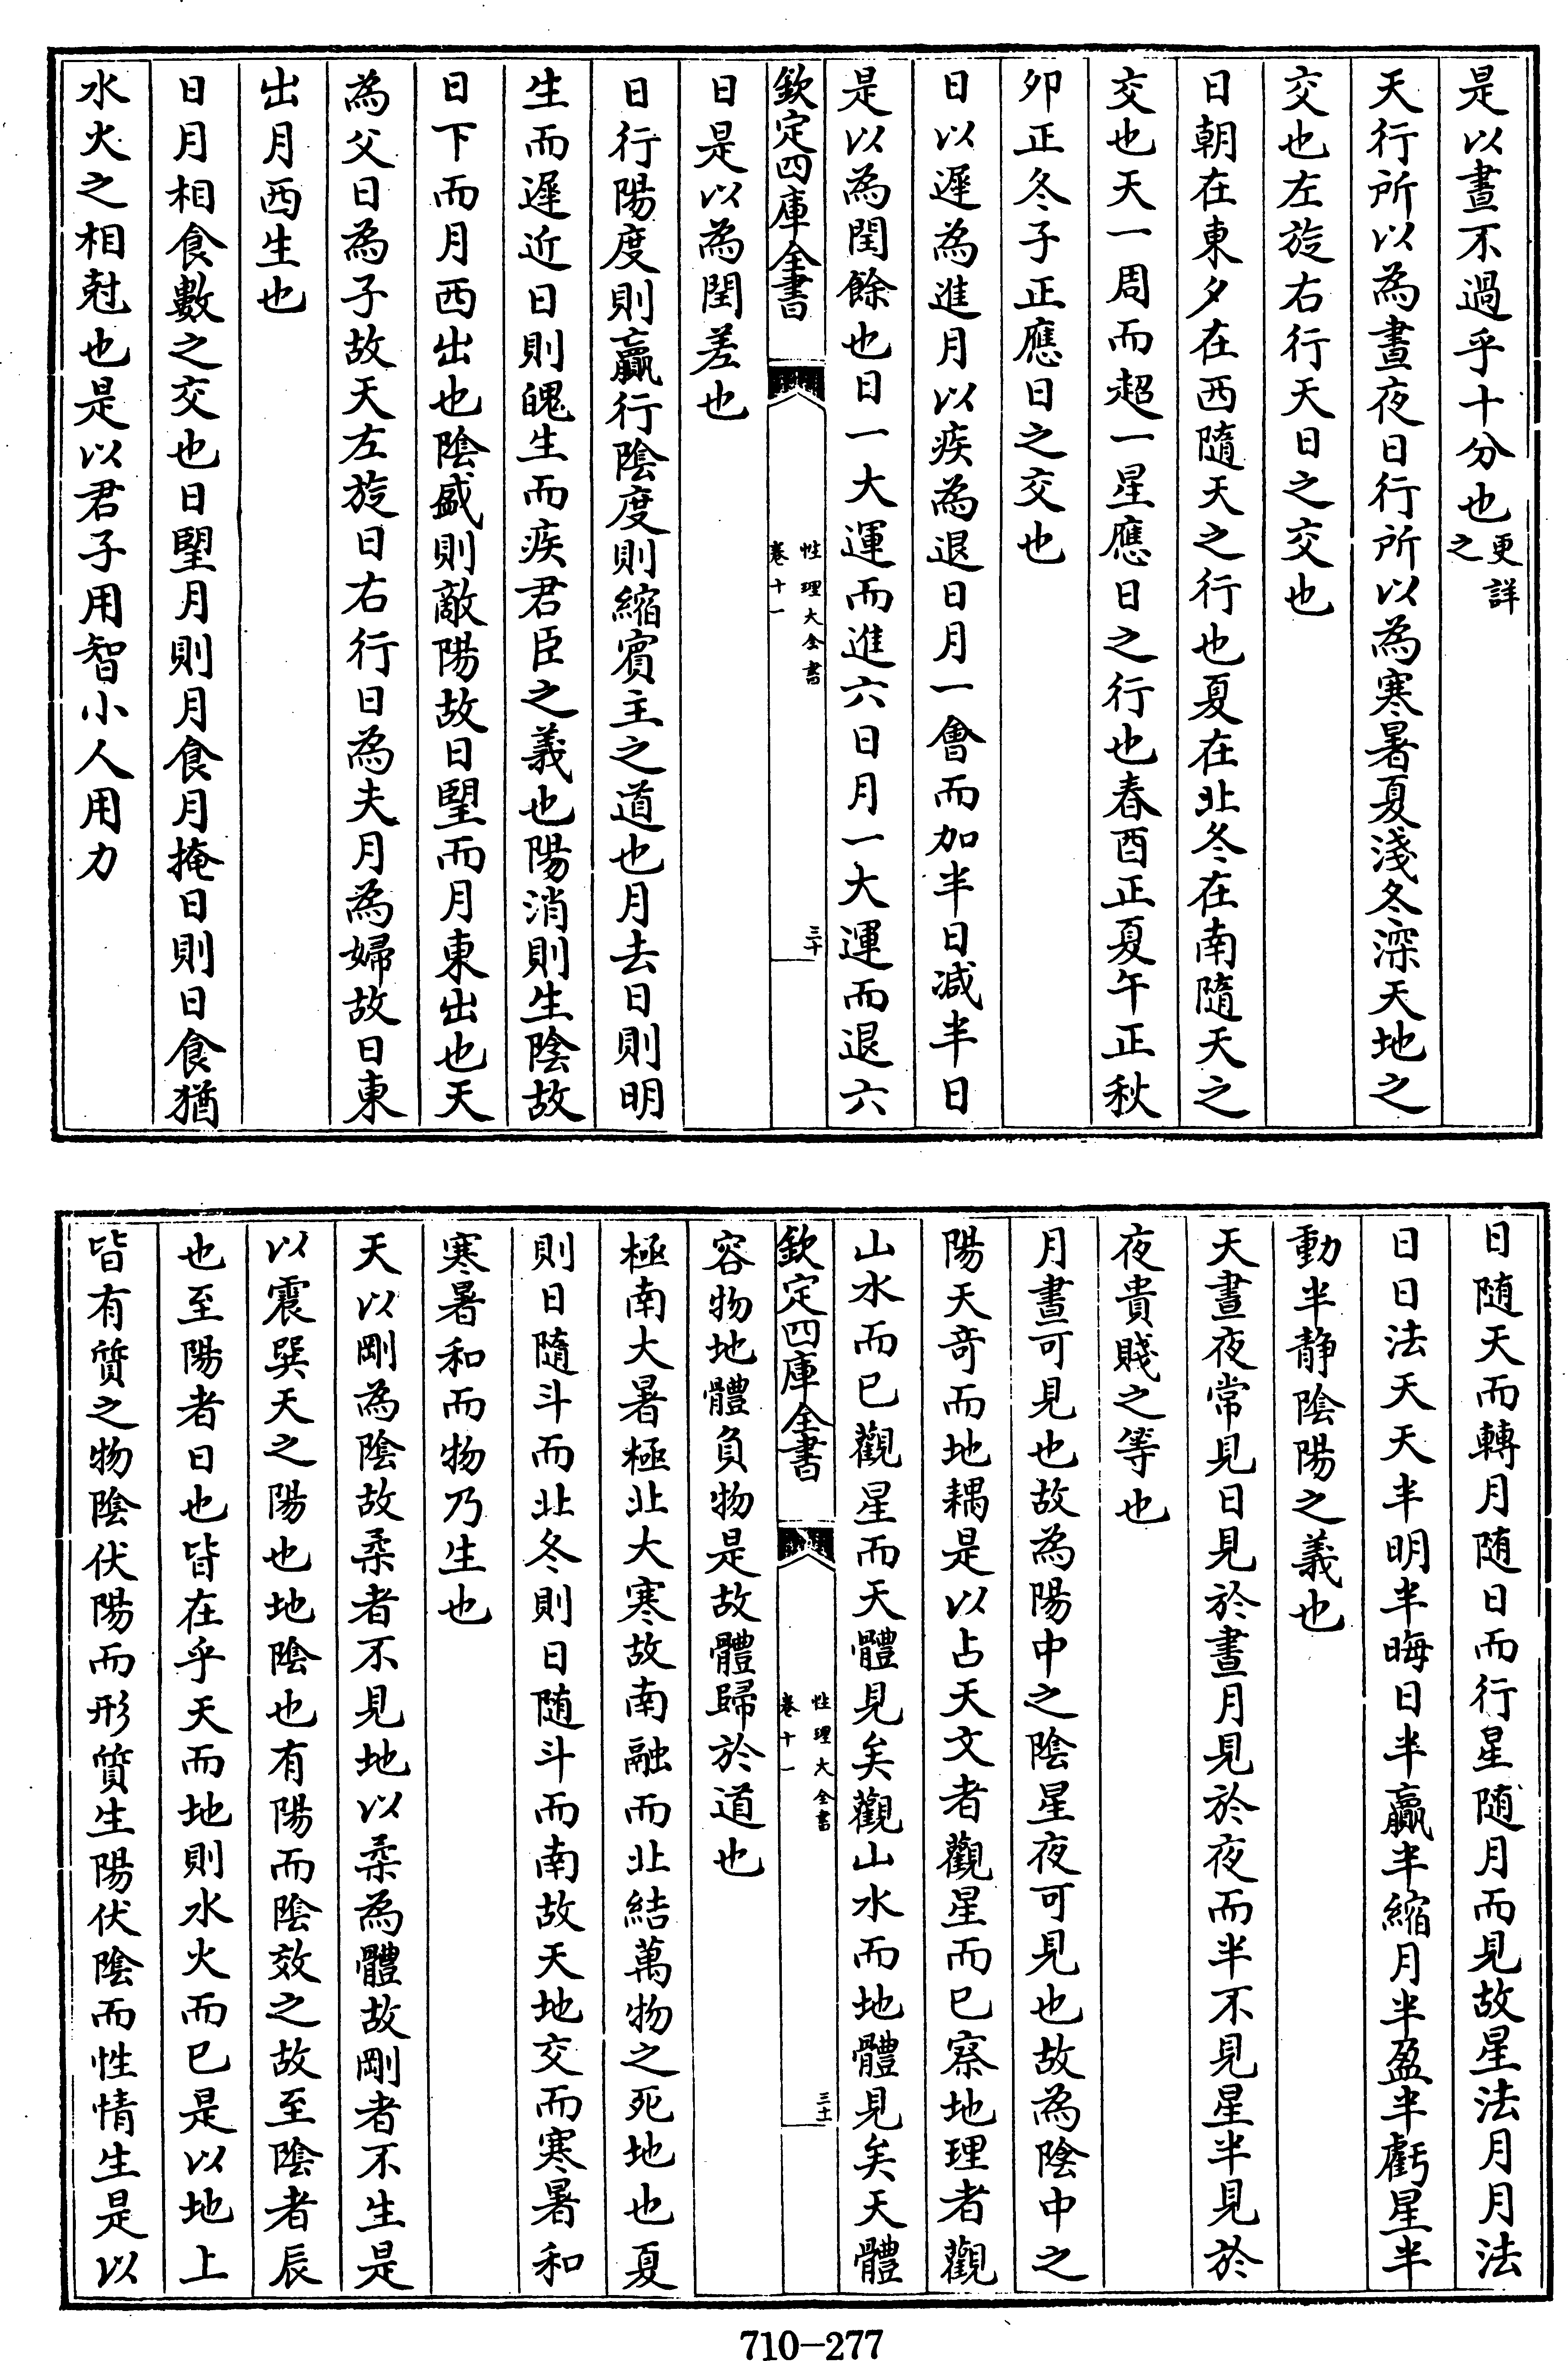 是以晝不過乎十分也更詳之
天行所以為晝夜日行所以為寒暑夏淺冬深天地之
交也左旋右行天日之交也
日朝在東夕在西隨天之行也夏在北冬在南隨天之
交也天一周而超一星應日之行也春酉正夏午正秋
卯正冬子正應日之交也
日以遲為進月以疾為退日月一會而加半日減半日
是以為閏餘也日一大運而進六日月一大運而退六
欽定四庫全書
性理大全書
卷十一
三十
日是以為閏差也
日行陽度則贏行陰度則縮賓主之道也月去日則明
生而遲近日則魄生而疾君臣之義也陽消則生陰故
日下而月西出也陰盛則敵陽故日望而月東出也天
為父日為子故天左旋日右行日為夫月為婦故日東
出月西生也
日月相食數之交也日望月則月食月掩日則日食猶
水火之相尅也是以君子用智小人用力
日隨天而轉月随日而行星随月而見故星法月月法
日日法天天半明半晦日半贏半縮月半盈半虧星半
動半静陰陽之義也
天晝夜常見日見於晝月見於夜而半不見星半見於
夜貴賤之等也
月晝可見也故為陽中之陰星夜可見也故為陰中之
陽天竒而地耦是以占天文者觀星而已察地理者觀
山水而已觀星而天體見矣觀山水而地體見矣天體
欽定四庫全書
性理大全書
卷十一
三十一
容物地體負物是故體歸於道也
極南大暑極北大寒故南融而北結萬物之死地也夏
則日隨斗而北冬則日随斗而南故天地交而寒暑和
寒暑和而物乃生也
天以剛為陰故柔者不見地以柔為體故剛者不生是
以震巽天之陽也地陰也有陽而陰效之故至陰者辰
也至陽者日也皆在乎天而地則水火而已是以地上
皆有質之物陰伏陽而形質生陽伏陰而性情生是以
710-277